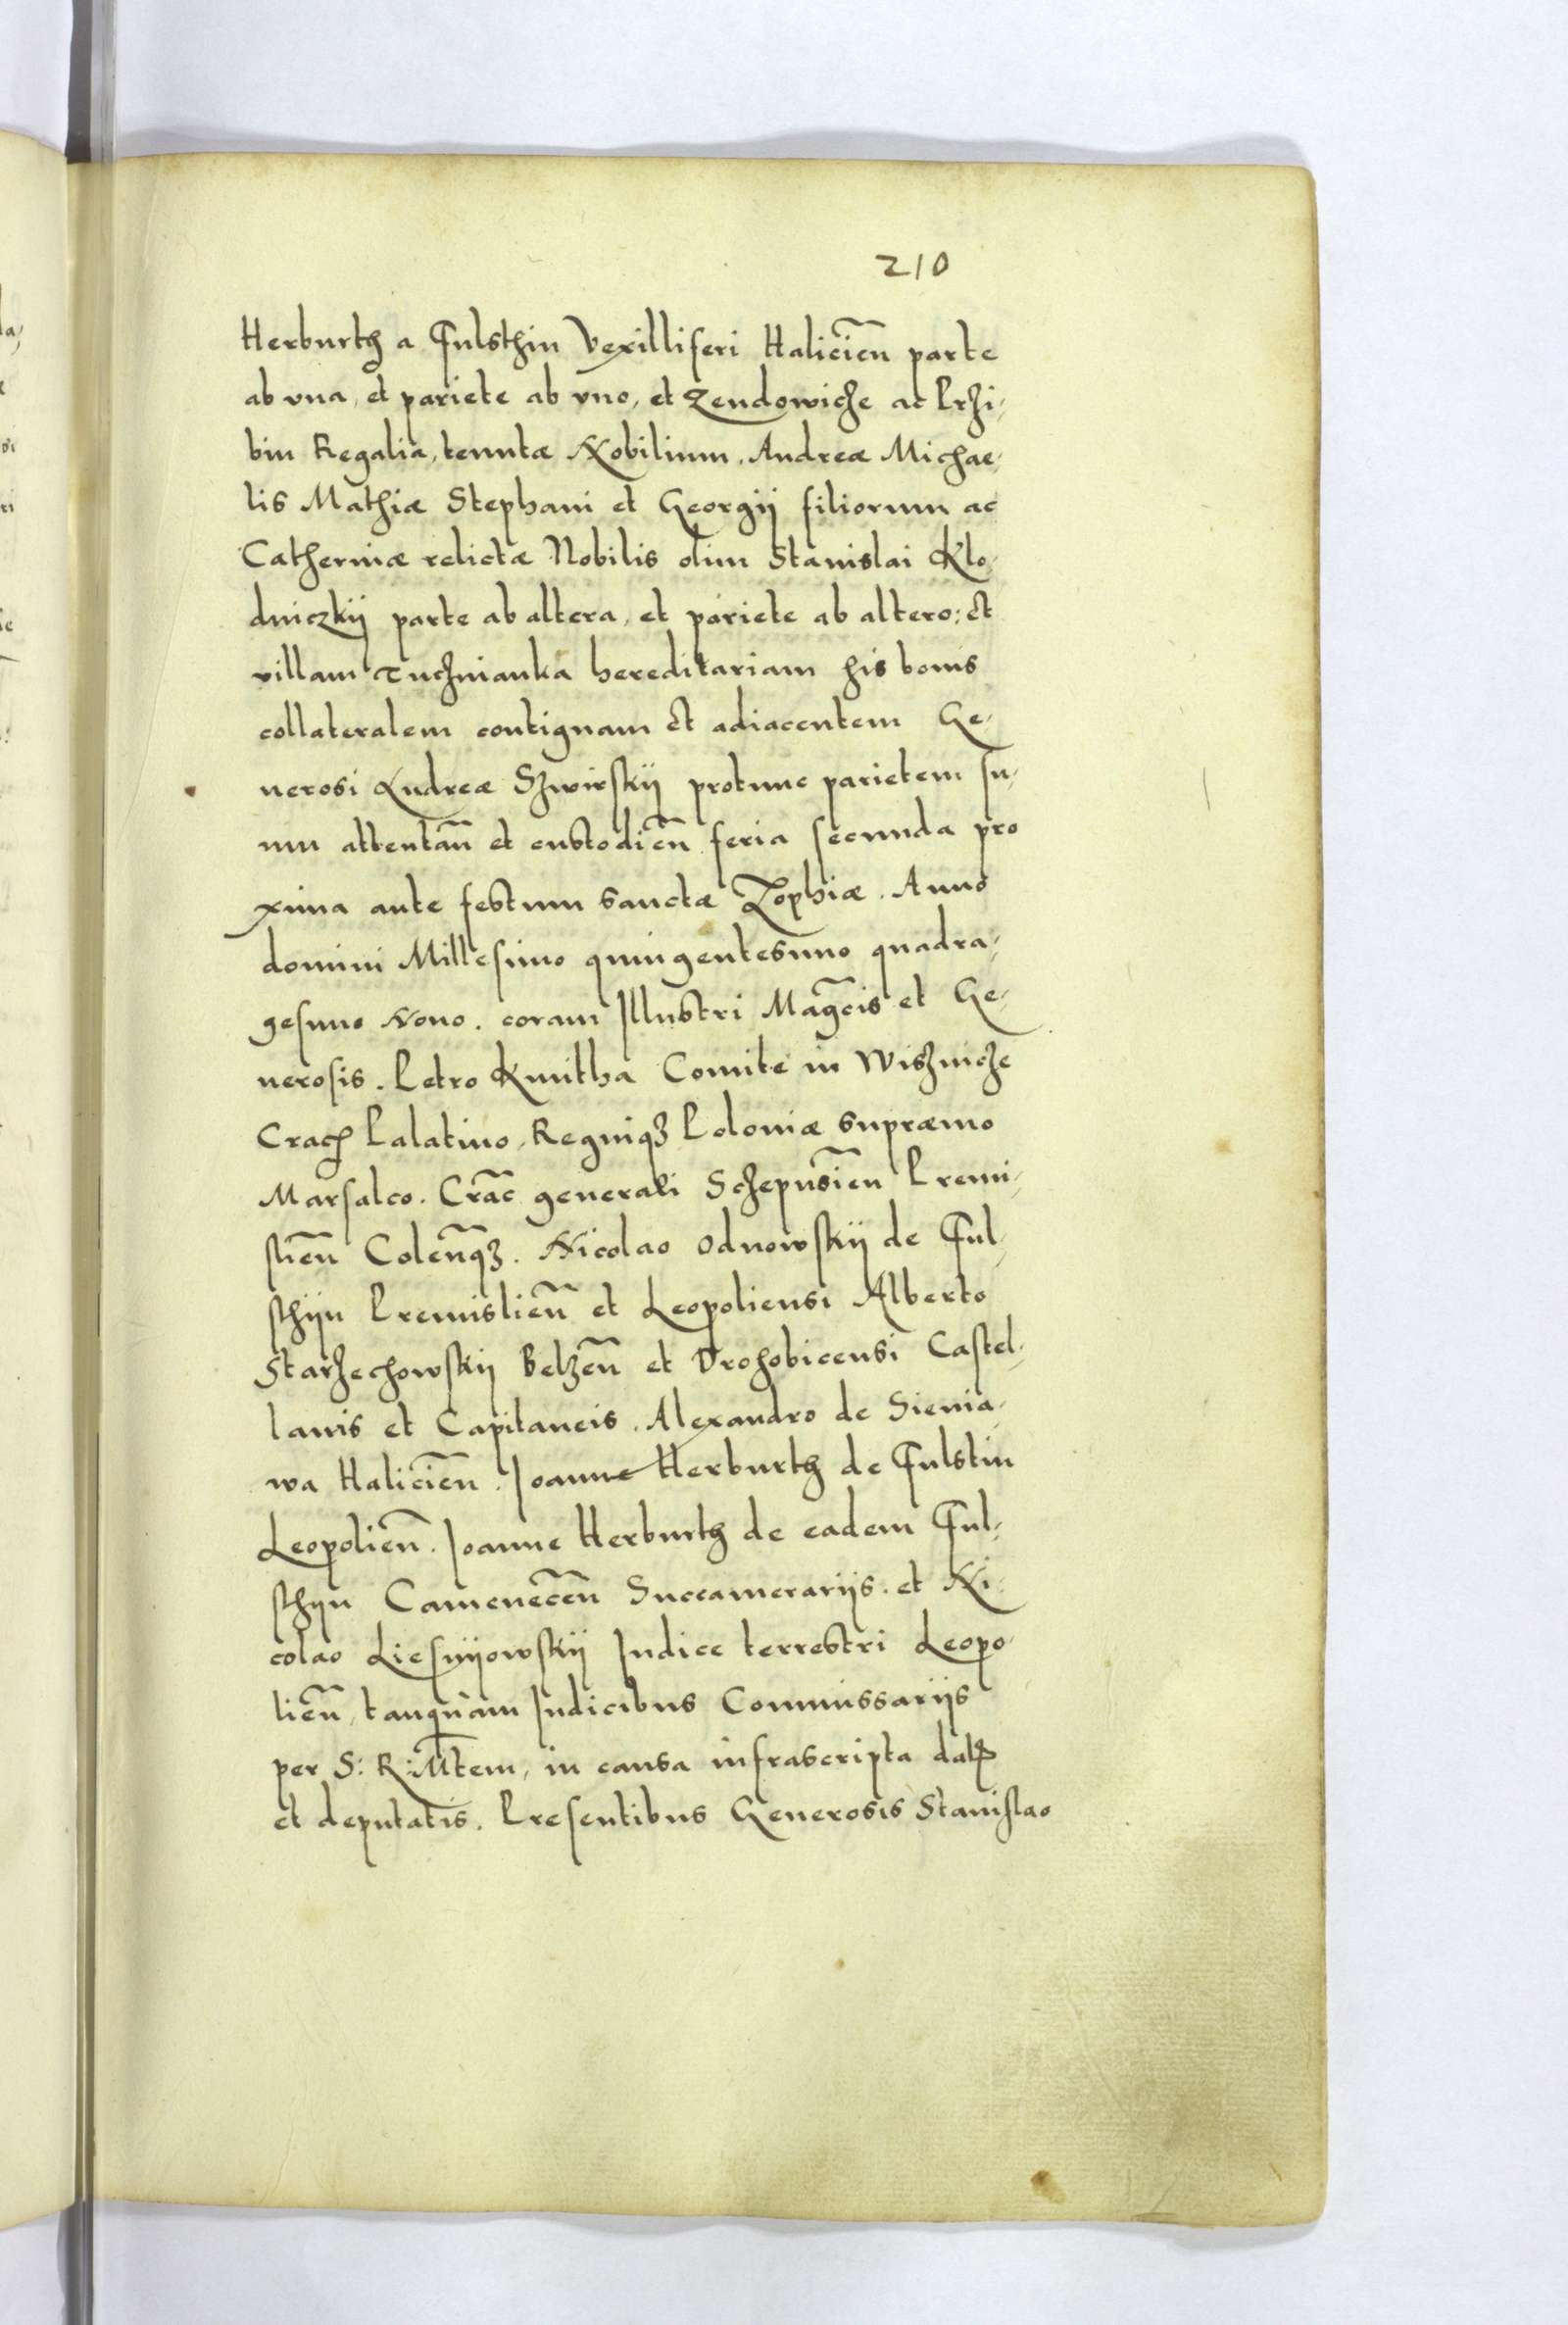 210
Herburth a Fulsthin Vexilliferi Haliciēn parte
ab vna, et pariete ab vno, et Zendowicze ac Przi-
bin Regalia, tenutæ Nobilium. Andreæ Michae-
lis Mathiæ Stephani et Georgij filiorum ac
Catherinæ relictæ Nobilis olim Stanislai Klo-
dniczkij parte ab altera, et pariete ab altero: et
villam Tuczmianka hereditariam his bonis
collateralem contiguam et adiacentem Ge-
nerosi Andreæ Szwirskij protunc parietem su-
um attentāń et custodiēn feria secunda pro
xima ante festum sanctæ Zophiæ. Anno
domini Millesimo quingentesimo quadra-
gesimo Nono. coram Illustri Magcīs et Ge-
nerosis. Petro Kmitha Comite in Wisznicze
Crac Palatino, Regniq3 Poloniæ supræmo
Marsalco. Crāc generali Schepusiēn Premi-
sliēn Colenq̄3. Nicolao Odnowskij de Ful-
sthijn Premisliēn et Leopoliensi Alberto
Starzechowskij Belzēn et Drohobicensi Castel-
lanis et Capitaneis. Alexandro de Sienia-
wa Haliciēn. Joanne Herburth de Fulstin
Leopoliēn. Joanne Herburth de eadem Ful-
sthijn Camenecēn Succamerarijs. et Ni-
colao Liesnijowskij Judice terrestri Leopo-
liēn, tanquam Judicibus Commissarijs
per S: R: Mtem, in causa infrascripta datis
et deputatis. Presentibus Generosis Stanislao